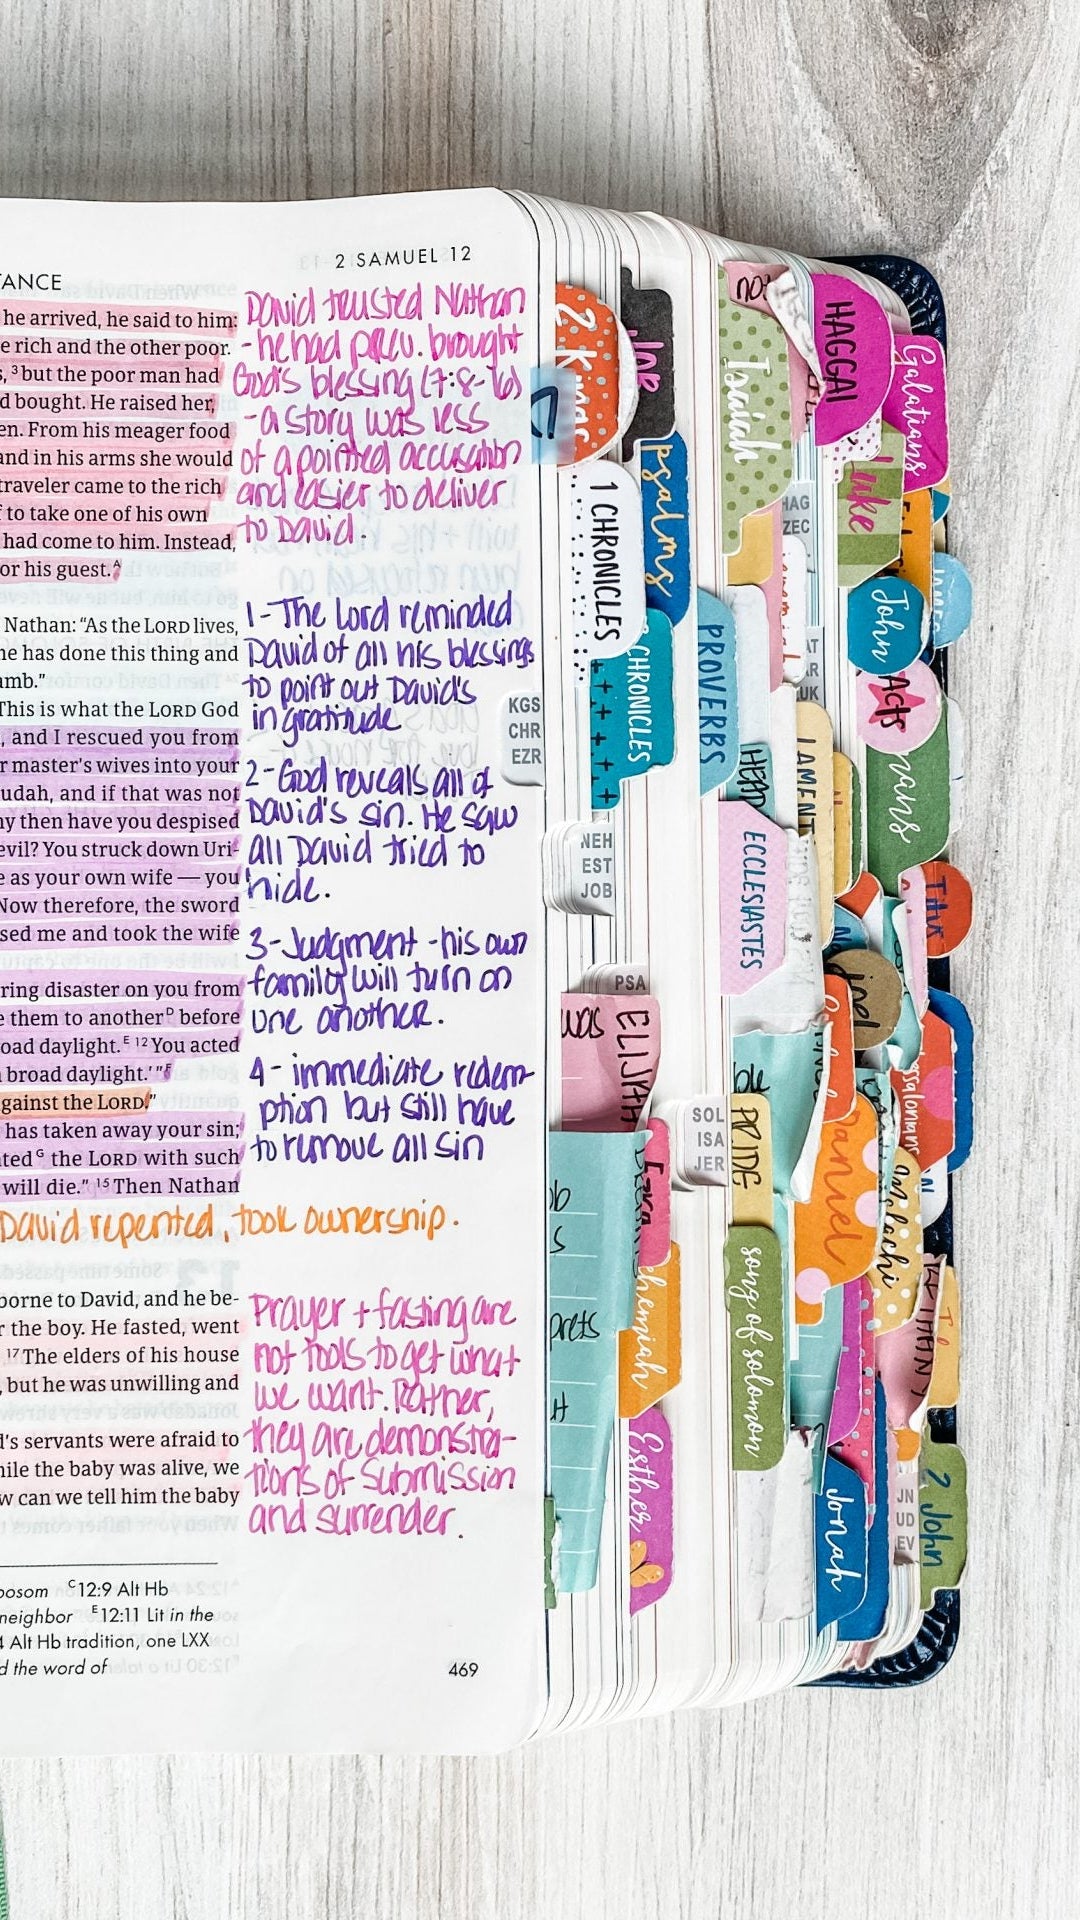 2 SAMUEL 12
TANCE
he arrived, he said to him:
e rich and the other poor.
s, ³but the poor man had
d bought. He raised her,
en. From his meager food
and in his arms she would
traveler came to the rich
f to take one of his own
had come to him. Instead,
or his guest.ᴬ
Nathan: “As the LORD lives,
he has done this thing and
amb.”
This is what the LORD God
, and I rescued you from
r master's wives into your
udah, and if that was not
hy then have you despised
evil? You struck down Uri-
e as your own wife — you
Now therefore, the sword
sed me and took the wife
ring disaster on you from
e them to anotherᴰ before
oad daylight.ᴱ ¹²You acted
broad daylight.’ ”ᶠ
gainst the LORD.”
has taken away your sin;
tedᴳ the LORD with such
will die.” ¹⁵Then Nathan
borne to David, and he be-
r the boy. He fasted, went
¹⁷The elders of his house
, but he was unwilling and
d's servants were afraid to
hile the baby was alive, we
w can we tell him the baby
bosom ᶜ12:9 Alt Hb
neighbor ᴱ12:11 Lit in the
4 Alt Hb tradition, one LXX
d the word of
469
David trusted Nathan
- he had prev. brought
God's blessing (7:8-16)
- a story was less
of a pointed accusation
and easier to deliver
to David.
1 - The Lord reminded
David of all his blessings
to point out David's
in gratitude
2 - God reveals all of
David's sin. He saw
all David tried to
hide.
3 - Judgment - his own
family will turn on
one another.
4 - immediate redem-
ption but still have
to remove all sin
David repented, took ownership.
Prayer + fasting are
not tools to get what
we want. Rather,
they are demonstra-
tions of submission
and surrender.
2 Kings
1 CHRONICLES
KGS
CHR
EZR
NEH
EST
JOB
PSA
was
ELIJAH
Ezra
Esther
JOB
psalms
CHRONICLES
PROVERBS
HEAD
ECCLESIASTES
SOL
ISA
JER
PRIDE
song of solomon
Isaiah
HAG
ZEC
LAMENT
Daniel
Jonah
HAGGAI
Luke
John
Acts
mans
Joel
Malachi
Galatians
James
Titus
ssalonians
JN
UD
EV
2 John